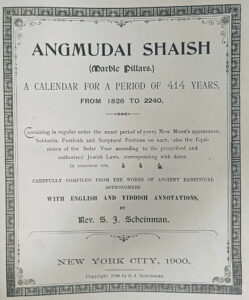 ANGMUDAI SHAISH
(Marble Pillars.)
A CALENDAR FOR A PERIOD OF 414 YEARS,
FROM 1826 TO 2240.
Containing in regular order the exact period of every New Moon's appearance,
Sabbaths, Festivals and Scriptural Portions on each, also the Equi-
noxes of the Solar Year according to the prescribed and
authorized Jewish Laws, corresponding with dates
in common era.
CAREFULLY COMPILED FROM THE WORKS OF ANCIENT RABBINICAL
ASTRONOMERS
WITH ENGLISH AND YIDDISH ANNOTATIONS,
BY
Rev. S. J. Scheinman.
NEW YORK CITY, 1900.
Copyright, 1900 by S. J. Scheinman.